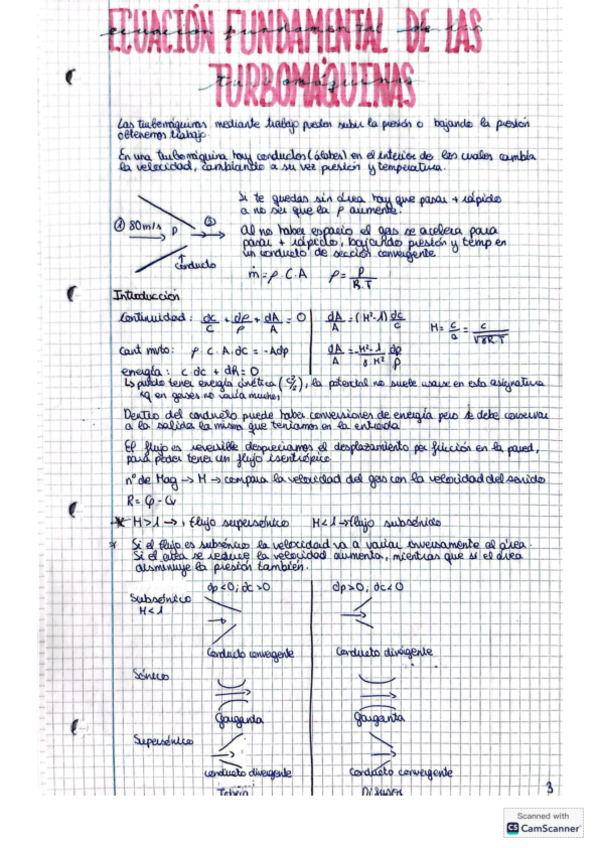 ECUACIÓN FUNDAMENTAL DE LAS
ecuacion fundamental de las
TURBOMAQUINAS
turbomáquinas
Las turbomáquinas mediante trabajo pueden subir la presión o bajando la presión
obtenemos trabajo.
En una turbomáquina hay conductos (álabes) en el interior de los cuales cambia
la velocidad, cambiando a su vez presión y temperatura.
Si te quedas sin área hay que pasar + rápido
a no ser que la ρ aumente.
① 80m/s ρ ②
conducto
Al no haber espacio el gas se acelera para
pasar + rápido, bajando presión y temp en
un conducto de sección convergente
ṁ = ρ.C.A ρ = P/R.T
Introducción
Continuidad: dc/c + dρ/ρ + dA/A = 0
dA/A = (M²-1) dc/c
M = c/a = c/√γRT
cant mvto: ρ.C.A.dc = -Adp
energía: c.dc + dh = 0
puede tener energía cinética (c²/2), la potencial no suele usarse en esta asignatura
xq en gases no varía mucho,
Dentro del conducto puede haber conversiones de energía pero se debe conservar
a la salida la misma que teníamos en la entrada
El flujo es reversible despreciamos el desplazamiento por fricción en la pared,
para poder tener un flujo isentrópico
nº de Mag → M → compara la velocidad del gas con la velocidad del sonido
R = Cp - Cv
* M>1 → flujo supersónico M<1 → flujo subsónico
* Si el flujo es subsónico la velocidad va a variar inversamente al área.
Si el area se reduce la velocidad aumenta, mientras que si el área
disminuye la presión también.
dp<0; dc>0 dp>0; dc<0
Subsónico
M<1
Conducto convergente Conducto divergente
Sónico
Garganta Garganta
Supersónico
conducto divergente Conducto convergente
3
Scanned with
CS CamScanner